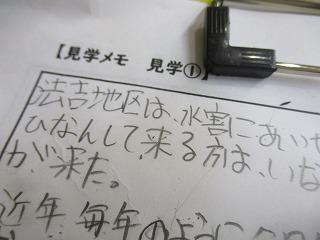 【見学メモ 見学①】
法吉地区は、水害にあいや
ひなんして、来る方は、いな
が来た。
近年 毎年のように